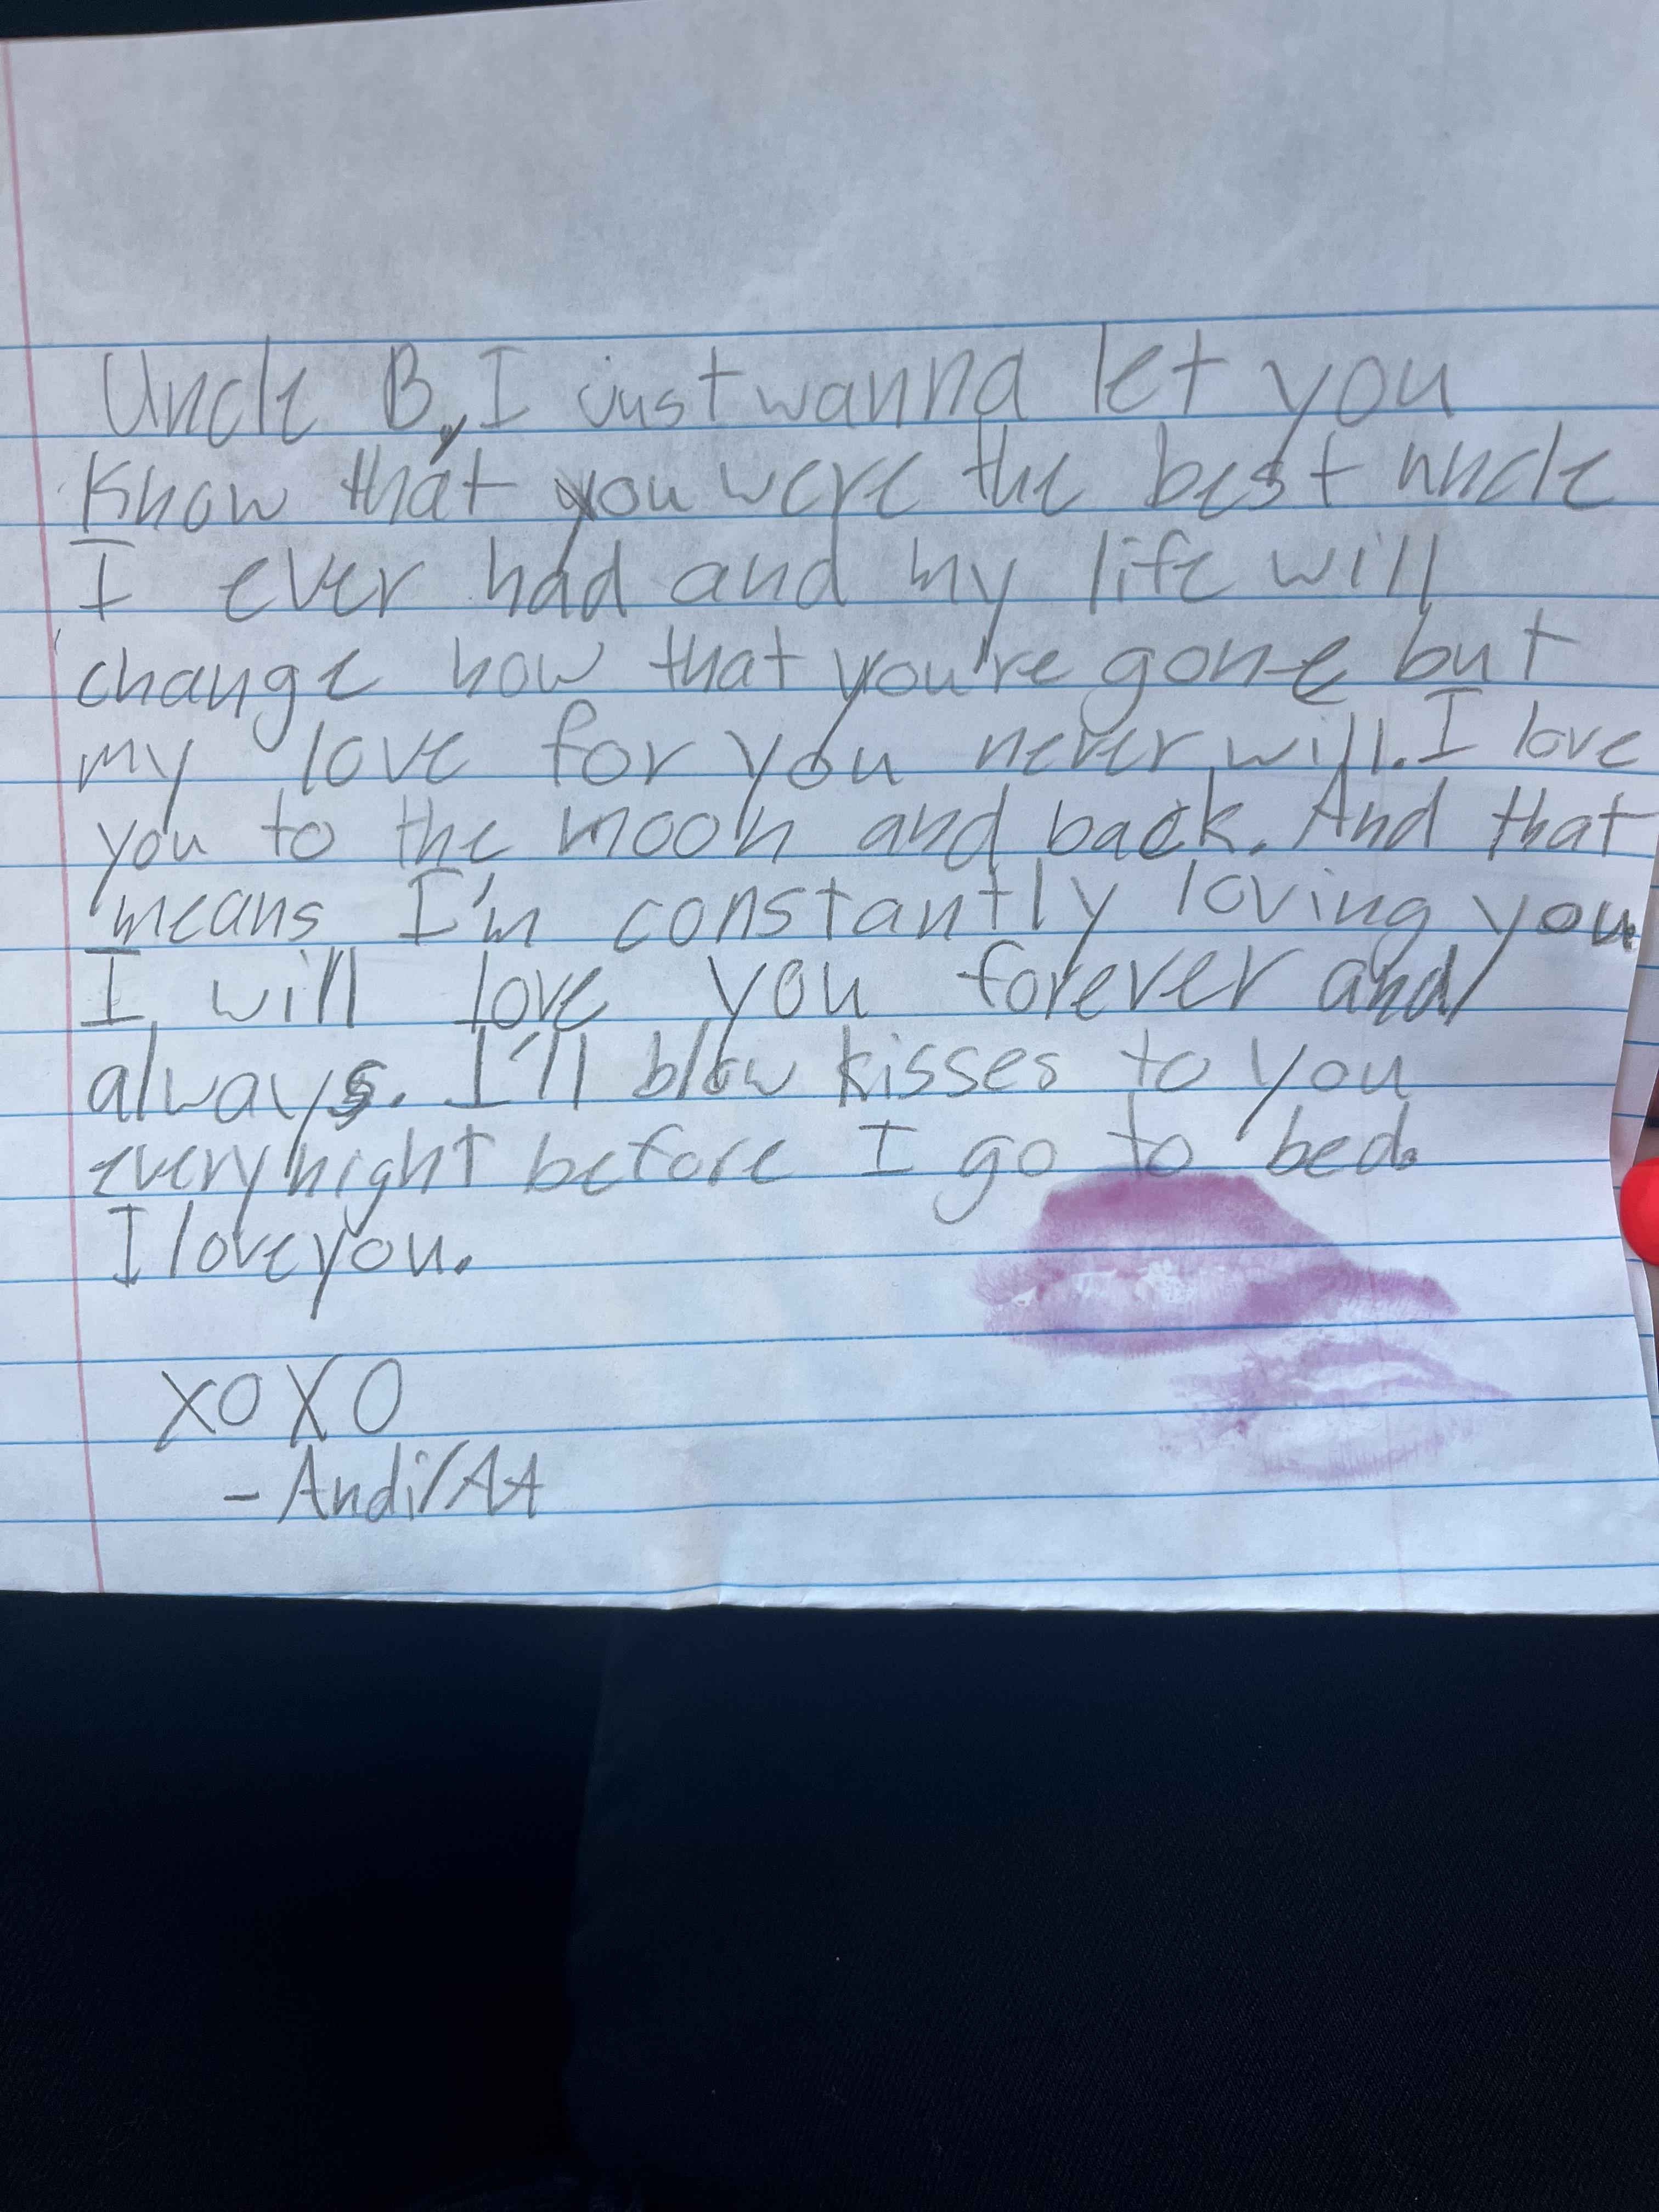 Uncle B, I just wanna let you
Know that you were the best uncle
I ever had and my life will
change now that you're gone but
my love for you never will. I love
you to the moon and back. And that
means I'm constantly loving you.
I will love you forever and
always. I'll blow kisses to you
every night before I go to bed.
I love you.
XOXO
- Andi/AA